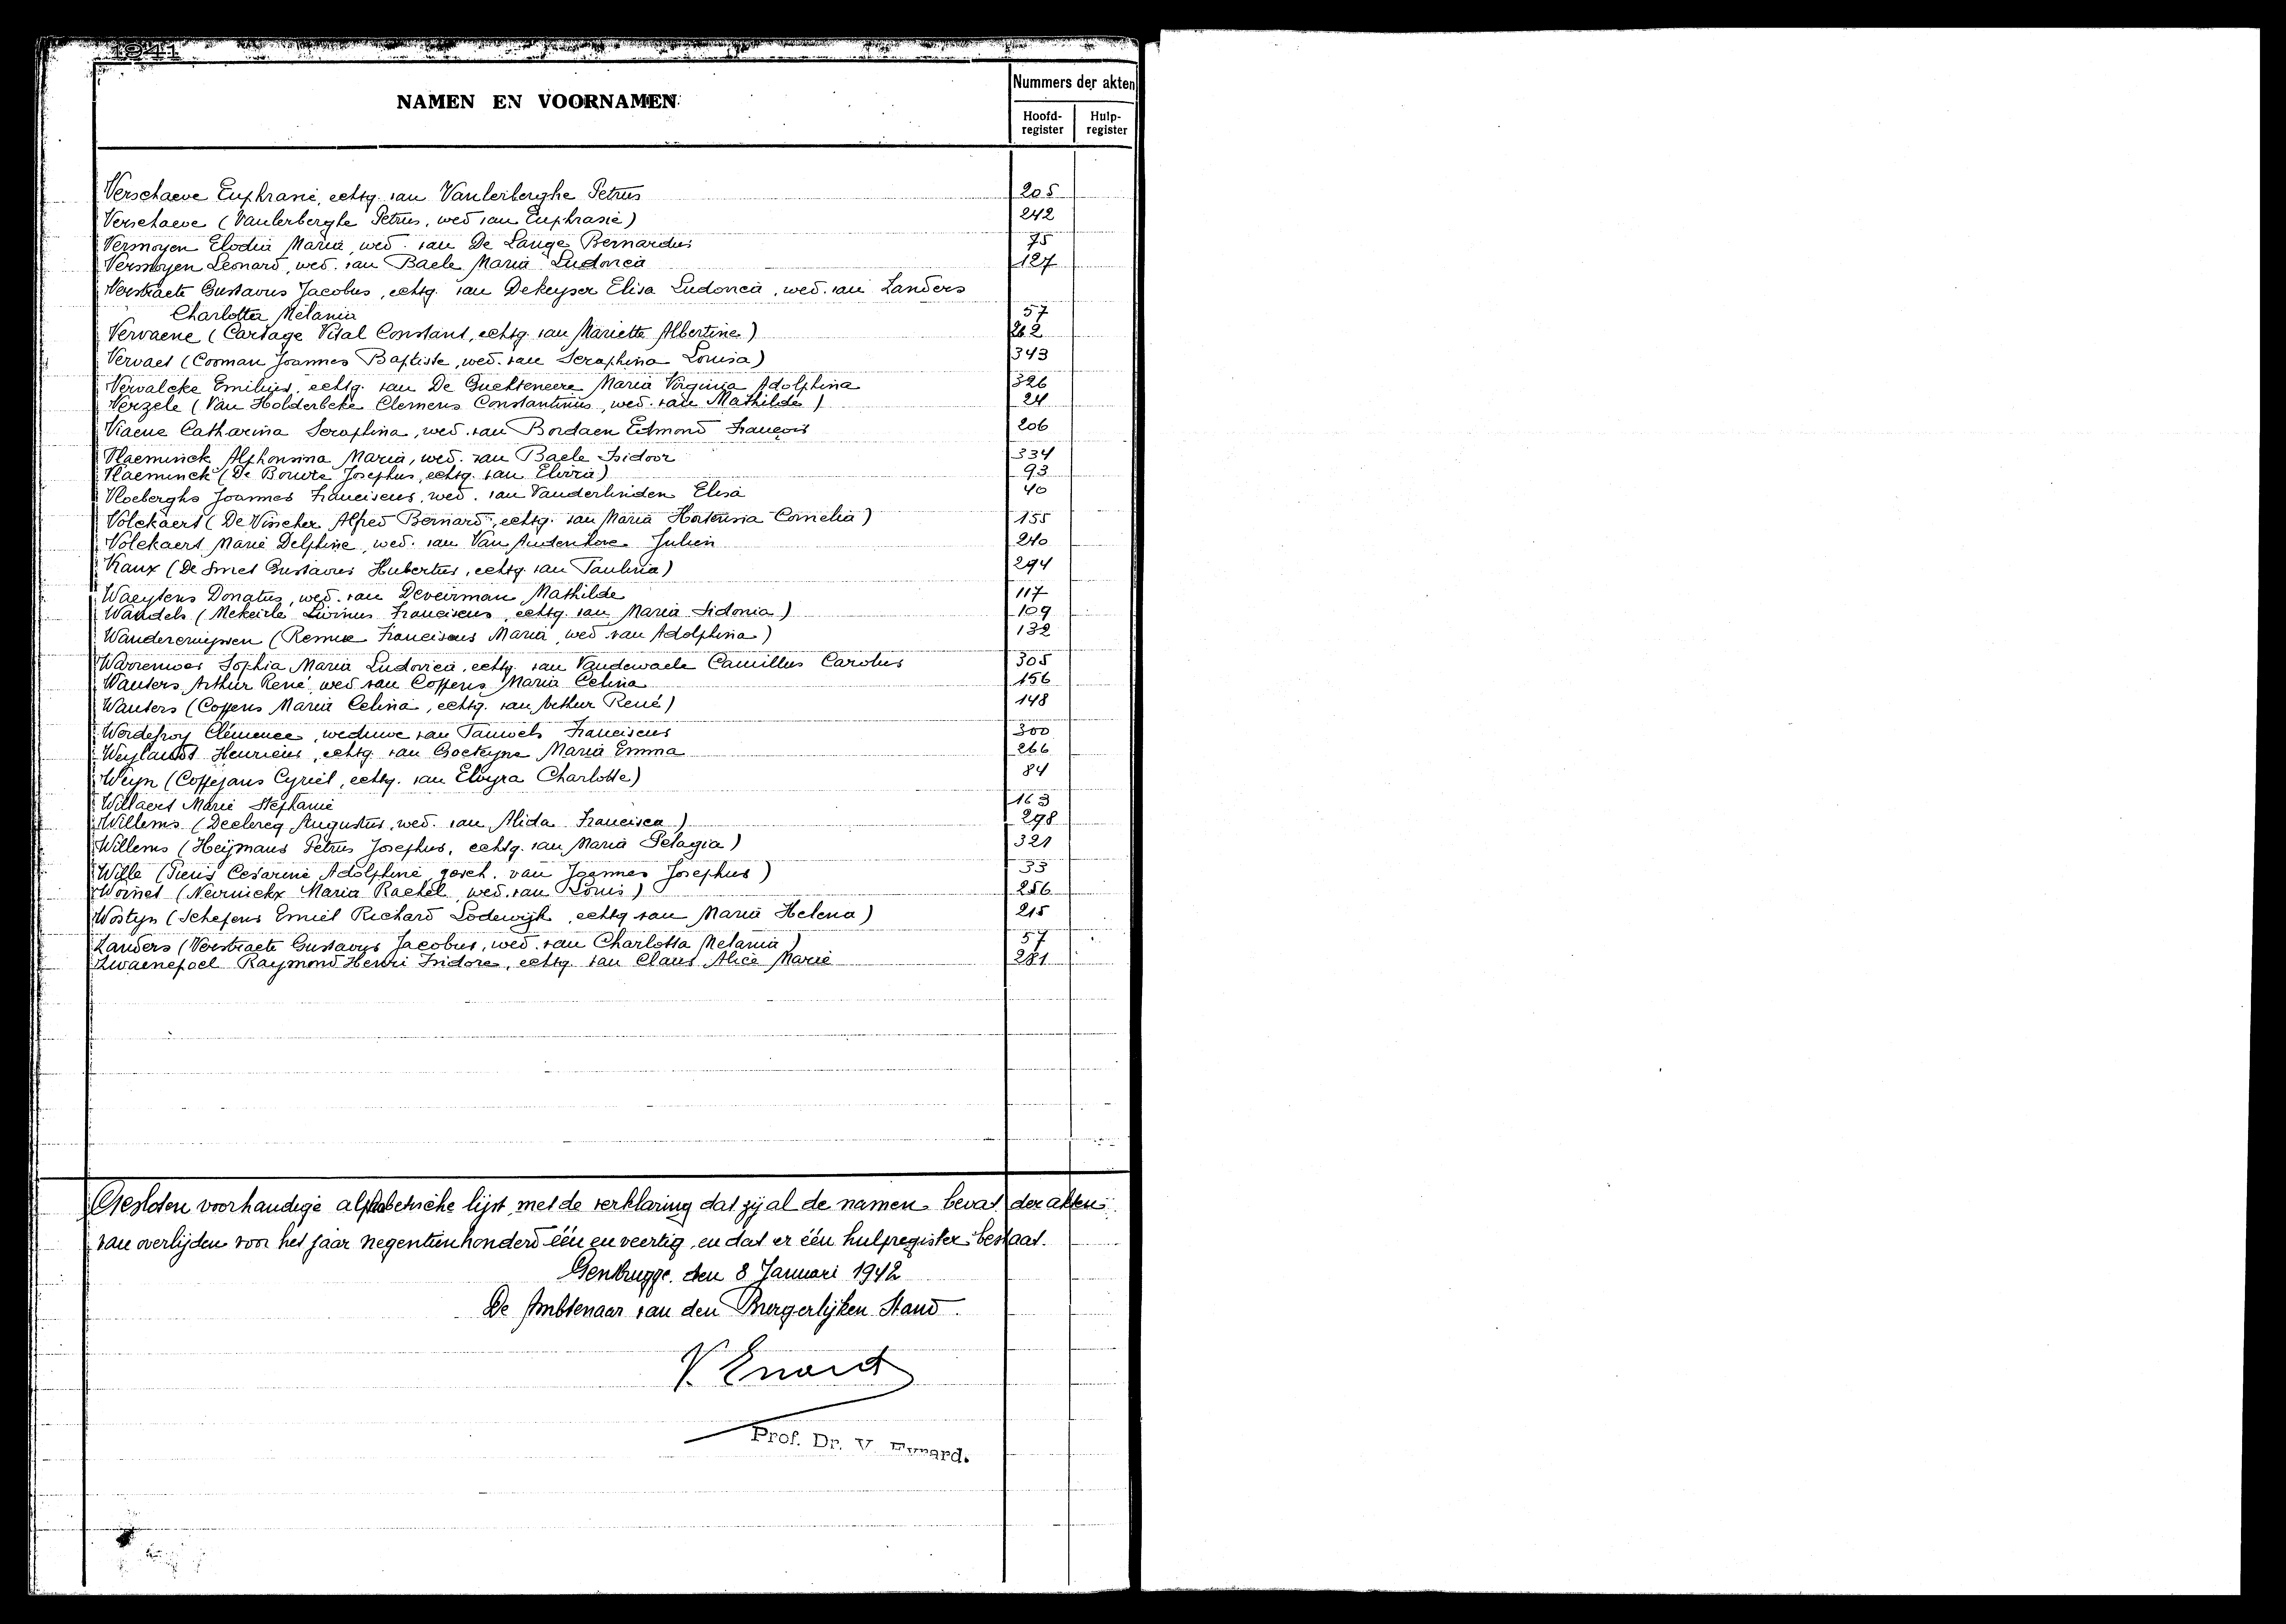 1941
NAMEN EN VOORNAMEN
Nummers der akten
Hoofd-register
Hulp-register
Verschaeve Euphrasie, echtg. van Vanlerberghe Petrus 205
Verschaeve (Vanlerberghe Petrus, wed van Euphrasie) 242
Vermoyen Elodia Maria, wed. van De Lange Bernardus 75
Vermoyen Leonard, wed. van Baele Maria Ludovica 127
Verstraete Gustavus Jacobus, echtg. van Dekeyser Elisa Ludovica, wed. van Landers
Charlotta Melania 57
Vervaene (Carsage Vital Constant, echtg. van Mariette Albertine) 262
Vervaet (Cooman Joannes Baptiste, wed. van Seraphina Louisa) 343
Vervalcke Emilius, echtg. van De Guchteneere Maria Virginia Adolphina 326
Verzele (Van Holderbeke Clemens Constantinus, wed. van Mathilde) 24
Viaene Catharina Seraphina, wed. van Bordaen Edmond François 206
Vlaeminck Alphonsina Maria, wed. van Baele Isidoor 334
Vlaeminck (De Bouvre Josephus, echtg. van Elvira) 93
Vloeberghs Joannes Franciscus, wed. van Vanderlinden Elisa 40
Volckaert (De Visscher Alfred Bernard, echtg. van Maria Hortensia Cornelia) 155
Volckaert Marie Delphine, wed. van Van Audenhove Julien 240
Vraux (De Smet Gustavus Hubertus, echtg. van Paulina) 294
Waeytens Donatus, wed. van Deveirman Mathilde 117
Wandels (Mekeirle Livinus Franciscus, echtg. van Maria Sidonia) 109
Wandercruyssen (Remue Franciscus Maria, wed van Adolphina) 132
Warremoes Sophia Maria Ludovica, echtg. van Vandewaele Camillus Carolus 305
Wauters Arthur René, wed van Coppens Maria Celina 156
Wauters (Coppens Maria Celina, echtg. van Arthur René) 148
Werdefroy Clémence, weduwe van Pauwels Franciscus 300
Weylandt Henricus, echtg van Goeteyne Maria Emma 266
Weyn (Coffijans Cyriel, echtg. van Elvyra Charlotte) 84
Willaert Marie Stephanie 163
Willems (Declercq Augustus, wed. van Alida Francisca) 298
Willems (Heijmans Petrus Josephus, echtg. van Maria Pelagia) 321
Wille (Pieris Cesarine Adolphine, gesch. van Joannes Josephus) 33
Woinet (Neirnickx Maria Rachel, wed. van Louis) 256
Wostyn (Schepens Emiel Richard Lodewijk, echtg van Maria Helena) 215
Landers (Verstraete Gustavus Jacobus, wed. van Charlotta Melania) 57
Zwaenepoel Raymond Henri Isidore, echtg. van Claus Alice Marie 281
Gesloten voorhandige alphabetische lijst, met de verklaring dat zij al de namen bevat der akten
van overlijden voor het jaar negentienhonderd één en veertig, en dat er één hulpregister bestaat.
Gentbrugge, den 8 Januari 1942
De Ambtenaar van den Burgerlijken Stand.
V. Evrard
Prof. Dr. V. Evrard.